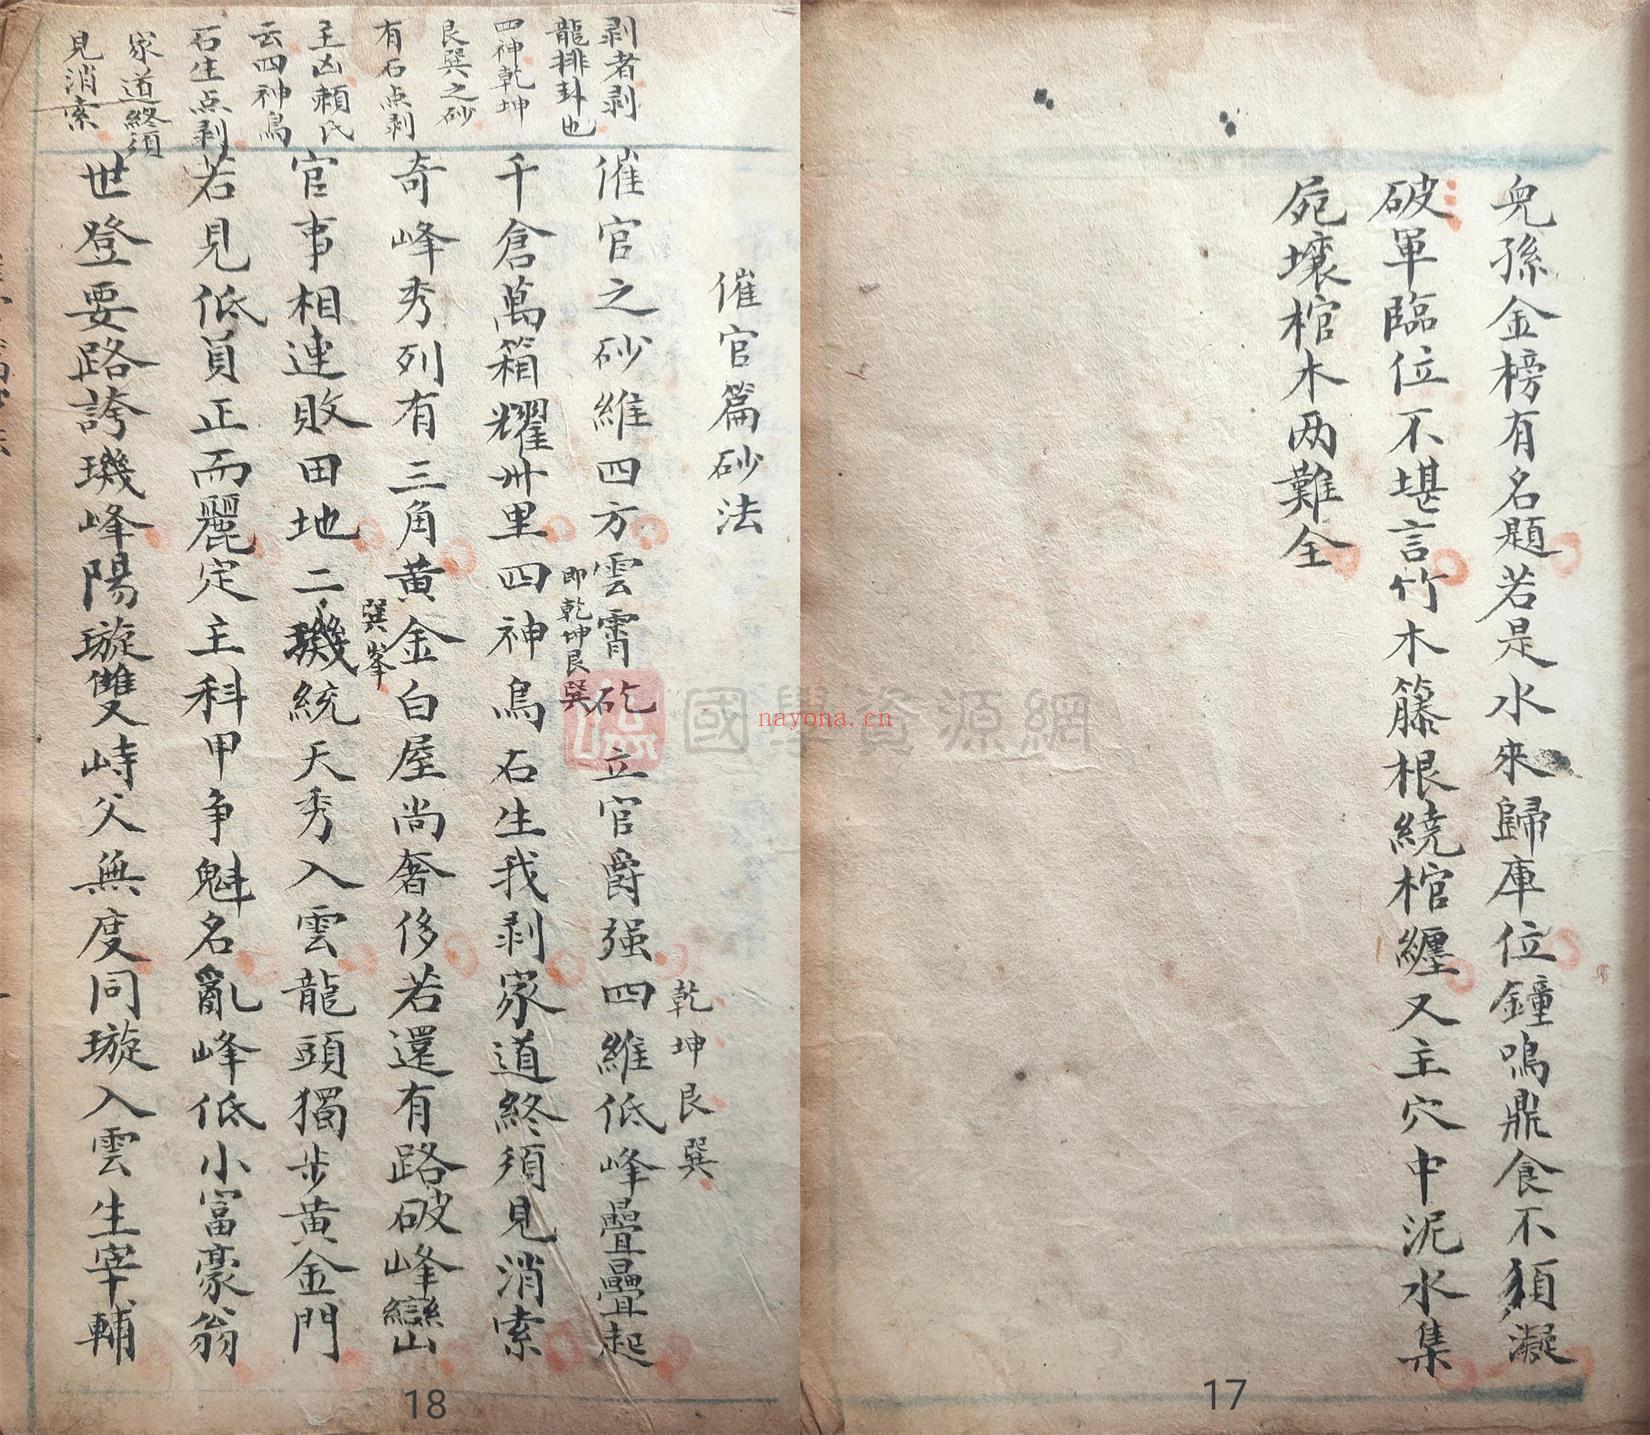 兒孫金榜有名題若是水來歸庫位鐘鳴鼎食不須凝
破軍臨位不堪言竹木籐根繞棺纏又主穴中泥水集
屍壞棺木两難全
17
催官篇砂法
乾坤艮巽
催官之砂維四方雲霄矻立官爵强四維低峰疊疊起
即乾坤艮巽
千倉萬箱耀州里四神鳥石生我剥家道終須見消索
奇峰秀列有三角黄金白屋尚奢侈若還有路破峰巒
巽峯
官事相連敗田地二璣統天秀入雲龍頭獨步黄金門
若見低員正而麗定主科甲争魁名亂峰低小富豪翁
世登要路誇璣峰陽璇雙峙父無度同璇入雲生宰輔
剥者剥
龍排卦也
四神乾坤
艮巽之砂
有石点剥
主凶頼氏
云四神鳥
石生点剥
家道終須
見消索
18
國學資源網
nayona.cn